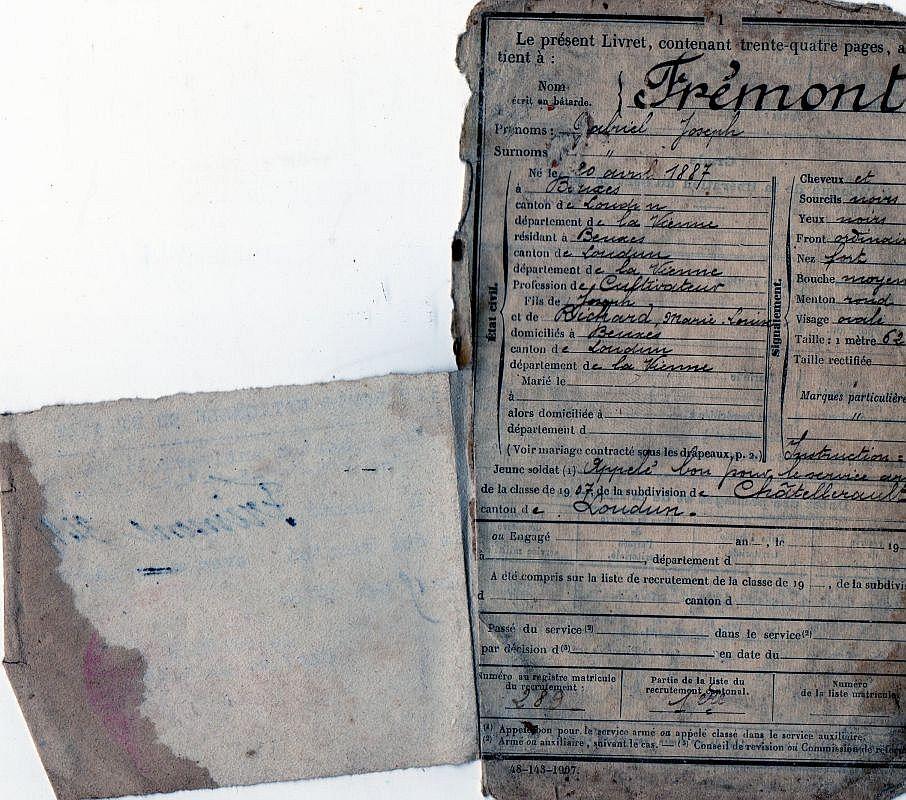 1
Le présent Livret, contenant trente-quatre pages, a
tient à :
Nom
écrit en bâtarde.
Frémont
Prénoms : Gabriel Joseph
Surnoms "
Né le 20 avril 1887
à Beuxes
canton de Loudun
département de la Vienne
résidant à Beuxes
canton de Loudun
département de la Vienne
Profession de Cultivateur
Fils de Joseph
et de Richard, Marie Louise
domiciliés à Beuxes
canton de Loudun
département de la Vienne
Marié le
à
alors domiciliée à
département d
(Voir mariage contracté sous les drapeaux, p. 2.)
État civil.
Signalement.
Cheveux et
Sourcils noirs
Yeux noirs
Front ordinair
Nez fort
Bouche moyen
Menton rond
Visage ovale
Taille : 1 mètre 62
Taille rectifiée
Marques particulière
"
Instruction :
Jeune soldat (1) Appelé bon pour le service ar
de la classe de 1907, de la subdivision de Châtellerault
canton de Loudun.
ou Engagé an , le 19
à , département d
A été compris sur la liste de recrutement de la classe de 19 , de la subdivi
d canton d
Passé du service (2) dans le service (2)
par décision d (3) en date du
Numéro au registre matricule
du recrutement :
289
Partie de la liste du
recrutement cantonal.
1ère
Numéro
de la liste matricule
(1) Appelé bon pour le service armé ou appelé classé dans le service auxiliaire.
(2) Armé ou auxiliaire, suivant le cas. — (3) Conseil de revision ou Commission de réfor
48-143-1907.